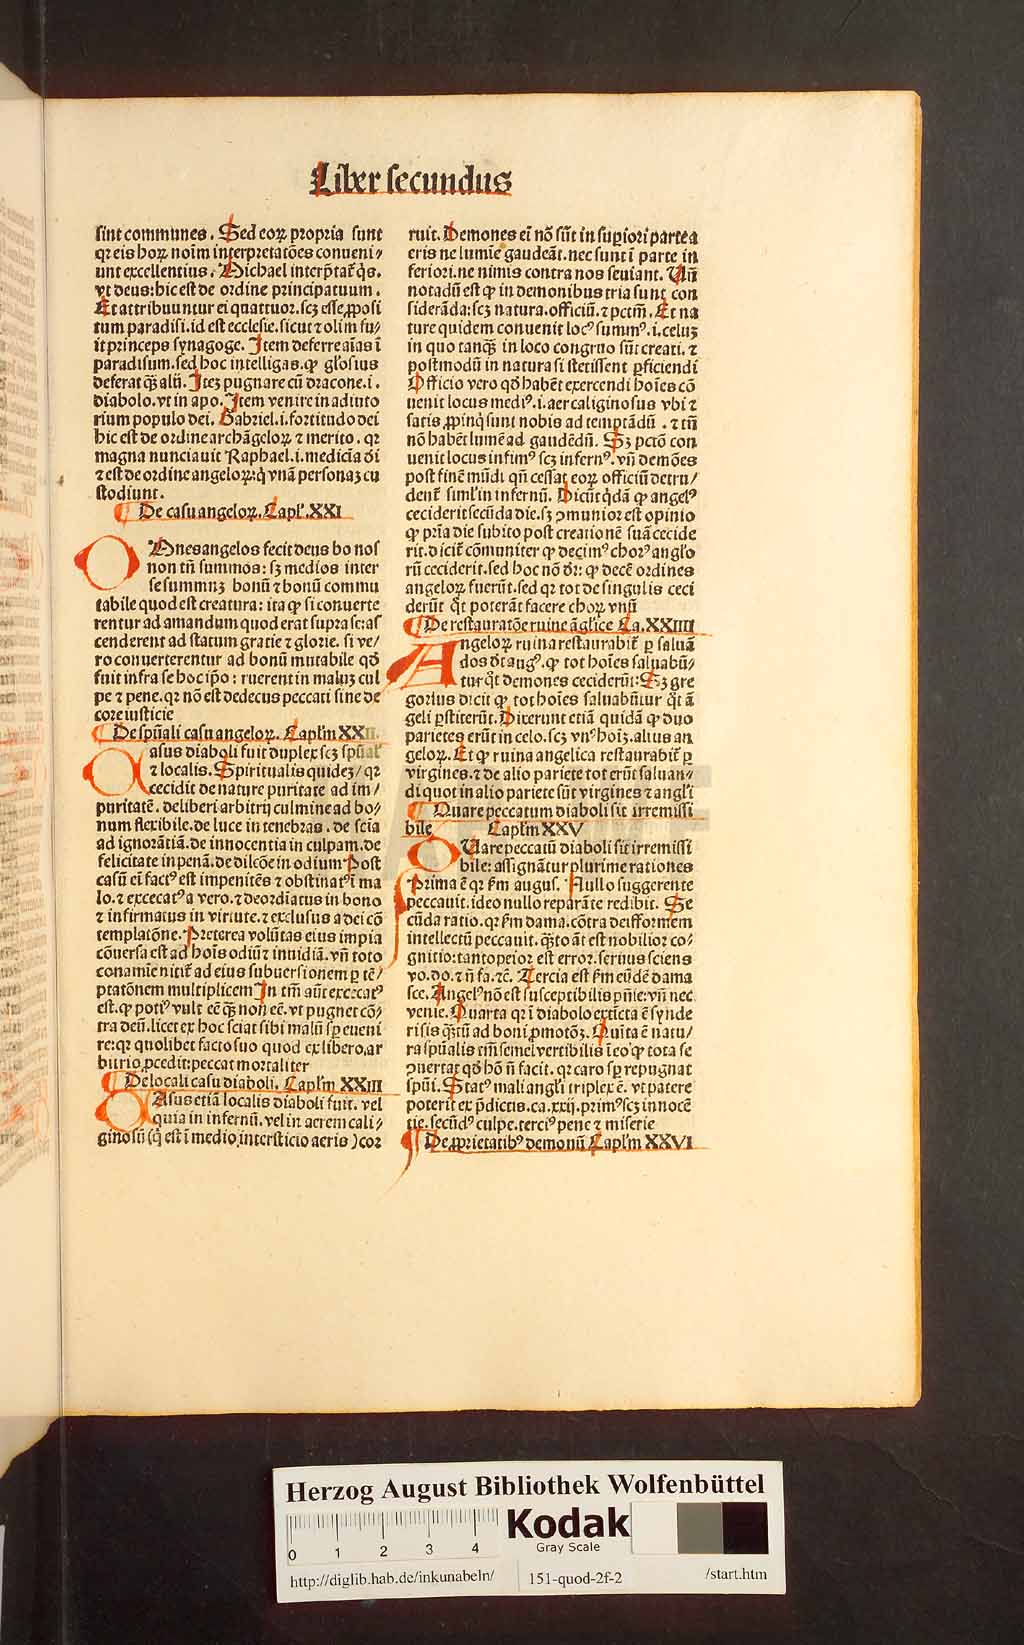 Liber secundus
sint communes. Sed eoꝝ propria sunt
qꝛ eis hoꝝ noīm interpretatōes conueni⸗
unt excellentius. Michael interp̄tat᷑ q̇s.
vt deus: hic est de ordine principatuum.
Et attribuuntur ei quattuor. scꝫ esse p̱posi
tum paradisi. id est ecclesie. sicut ⁊ olim fu⸗
it princeps synagoge. Item deferre aīas ī
paradisum. sed hoc intelligas. ꝙ gl̄osius
deferat q̄ꝫ alij. Itēꝫ pugnare cū dracone. i.
diabolo. vt in apo. Item venire in adiuto
rium populo dei. Gabriel. i. fortitudo dei
hic est de ordine archāgeloꝝ ⁊ merito. qꝛ
magna nunciauit Raphael. i. medicīa dī
⁊ est de ordine angeloꝝ: q̇ vnā personaꝫ cu
stodiunt.
De casu angeloꝝ. Capl'. XXI
OMnes angelos fecit deus bo nos
non tn̄ summos: sꝫ medios inter
se summuꝫ bonū ⁊ bonū commu
tabile quod est creatura: ita ꝙ si conuerte
rentur ad amandum quod erat supra se: as
cenderent ad statum gratie ⁊ glorie. si ve⸗
ro conuerterentur ad bonū mutabile qđ
fuit infra se hoc ip̄o: ruerent in maluꝫ cul
pe ⁊ pene. qꝛ nō est dedecus peccati sine de
core iusticie
De spūali casu angeloꝝ. Capl'm XXII.
Casus diaboli fuit duplex scꝫ spūal'
⁊ localis. Spiritualis quideꝫ⸗ qꝛ
cecidit de nature puritate ad im⸗
puritatē. de liberi arbitrij culmine ad bo⸗
num flexibile. de luce in tenebras. de scīa
ad ignorātiā. de innocentia in culpam. de
felicitate in penā. de dilcōe in odium Post
casū eī fact⁹ est impenitēs ⁊ obstinat⁹ ī ma
lo. ⁊ excecat⁹ a vero. ⁊ deordiatus in bono
⁊ infirmatus in virtute. ⁊ exclusus a dei cō
templatōne. Preterea volūtas eius impia
cōuersa est ad hoīs odiū ⁊ inuidiā. vn̄ toto
conamīe nitit᷑ ad eius subuersionem ꝑ tē⸗
ptatōnem multiplicem In tm̄ aūt excecat⁹
est. ꝙ poti⁹ vult eē q̄ꝫ non eē. vt pugnet cō⸗
tra deū. licet ex hoc sciat sibi malū sꝑ eueni
re: qꝛ quolibet facto suo quod ex libero. ar
bitrio p̱cedit: peccat mortaliter
De locali casu diaboli. Capl'm XXIII
CAsus etiā localis diaboli fuit. vel
quia in infernū. vel in aerem cali⸗
ginosū (q̇ est ī medio intersticio aeris) cor
ruit. Demones eī nō sūt in suꝑiori parte a
eris ne lumīe gaudeāt. nec sunt ī parte in
feriori. ne nimis contra nos seuiant. Un̄
notadū est ꝙ in demonibus tria sunt con
siderāda: scꝫ natura. officiū. ⁊ pctm̄. Et na
ture quidem conuenit loc⁹ summ⁹. i. celuꝫ
in quo tanq̄ꝫ in loco congruo sūt creati. ⁊
postmodū in natura si stetissent ꝑficiendi
Officio vero qđ habēt exercendi hoīes cō
uenit locus medi⁹. i. aer caliginosus vbi ⁊
satis p̱pinq̇ sunt nobis ad temptādū. ⁊ tn̄
nō habēt lumē ad gaudēdū. Sꝫ pctō con
uenit locus infim⁹ scꝫ infern⁹. vn̄ demōes
post finē mūdi qn̄ cessat eoꝝ officiū detru⸗
dent᷑ siml' in infernū. Dicūt q̇dā ꝙ angel⁹
ceciderit secūda die. sꝫ ꝯmunior est opinio
ꝙ pr̄ia die subito post creationē suā cecide
rit. dicit᷑ cōmuniter ꝙ decim⁹ chor⁹ angl'o
rū ceciderit. sed hoc nō dr̄: ꝙ decē ordines
angeloꝝ fuerūt. sed qꝛ tot de singulis ceci
derūt q̇t poterāt facere choꝝ vnū
De restauratōe ruine āglice Ca. XXIIII
Angeloꝝ ruina restaurabit᷑ ꝑ saluā
dos dt̄ aug⁹. ꝙ tot hoīes saluabū⸗
tur q̇t demones ceciderūt: Sꝫ gre
gorius dicit ꝙ tot hoīes saluabūtur q̇t ā
geli ꝑstiterūt. Dixerunt etiā quidā ꝙ duo
parietes erūt in celo. scꝫ vn⁹ hoīꝫ. alius an
geloꝝ. Et ꝙ ruina angelica restaurabit᷑ ꝑ
virgines. ⁊ de alio pariete tot erūt saluan⸗
di quot in alio pariete sūt virgines ⁊ angl'i
Quare peccatum diaboli sit irremissi
bile Capl'm XXV
QUare peccatū diaboli sit irremissi
bile: assignātur plurime rationes
Prima ē qꝛ ẜm augus. Nullo suggerente
peccauit. ideo nullo reparāte redibit. Se
cūda ratio. qꝛ ẜm dama. cōtra deifformem
intellectū peccauit. q̄ꝫto āt est nobilior co⸗
gnitio: tanto peior est error. seruus sciens
vo. do. ⁊ n̄ fa. ⁊c̄. Tercia est ẜm eūdē dama
sce. Angel⁹ nō est susceptibilis pn̄ie: vn̄ nec
venie. Quarta qꝛ ī diabolo extīcta ē synde
risis q̄ꝫtū ad boni ꝓmotōꝫ. Quīta ē natu⸗
ra spūalis tm̄ semel vertibilis ī eo ꝙ tota se
ꝯuertat qđ hō n̄ facit. qꝛ caro sꝑ repugnat
spūi. Stat⁹ mali angl'i triplex ē. vt patere
poterit ex p̄dictis. ca. xxij. prim⁹ scꝫ innocē
tie. secūd⁹ culpe. terci⁹ pene ⁊ miserie
De p̱prietatib⁹ demonū Capl'm XXVI
Herzog August Bibliothek Wolfenbüttel
0 1 2 3 4
Kodak
Gray Scale
http://diglib.hab.de/inkunabeln/
151-quod-2f-2
/start.htm